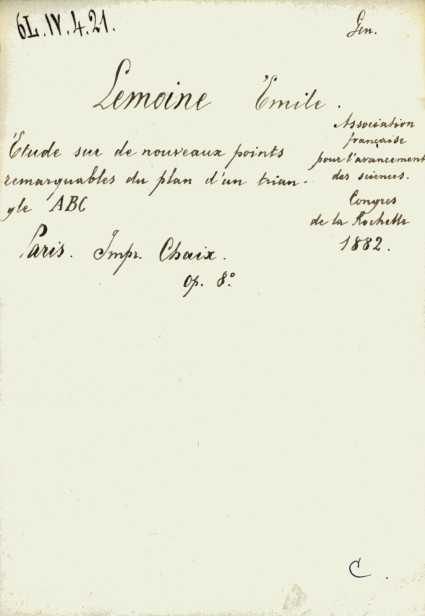 6L.IV.4.21.
Gen.
Lemoine Émile.
Association
française
pour l'avancement
des sciences.
Congres
de la Rochelle
1882.
Étude sur de nouveaux points
remarquables du plan d'un trian-
gle ABC
Paris. Impr. Chaix.
op. 8°.
C.